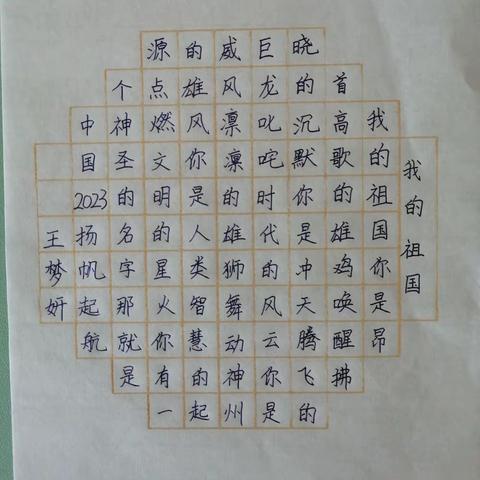 我的祖国
我的祖国你是昂
首高歌的雄鸡唤醒拂
晓的沉默你是冲天腾飞的
巨龙叱咤时代的风云你是
威风凛凛的雄狮舞动神州
的雄风你是人类智慧的起
源点燃文明的星火你有一
个神圣的名字那就是
中国2023扬帆起航
王梦妍